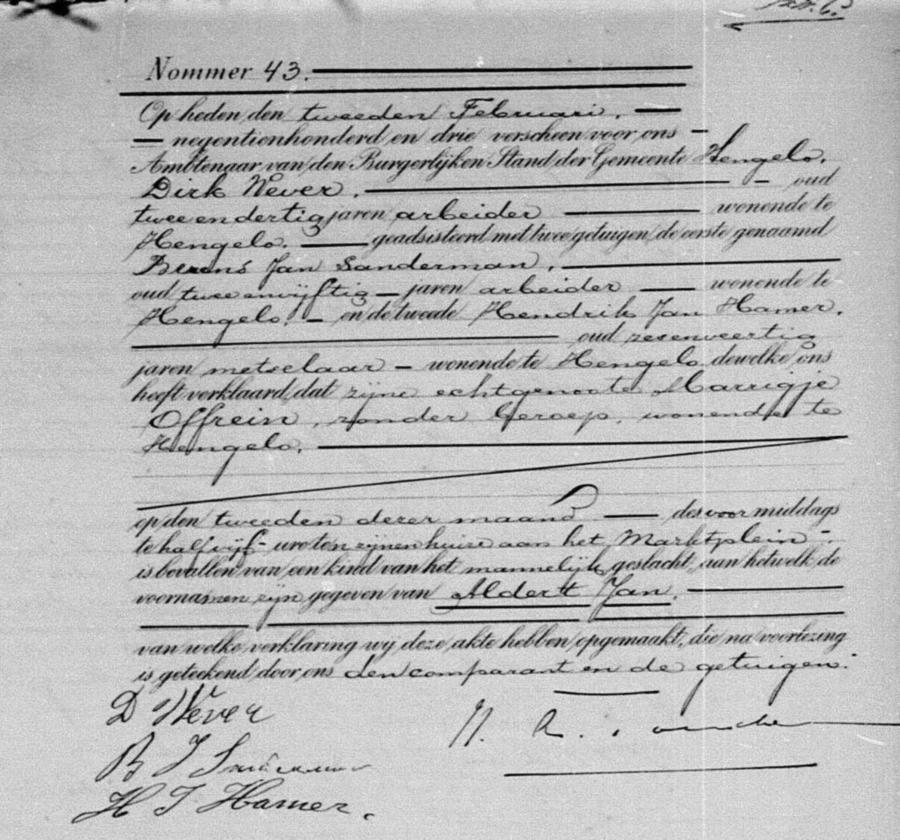 Nommer 43.
Op heden den tweeden Februari.
negentienhonderd en drie verscheen voor ons
Ambtenaar van den Burgerlijken Stand der Gemeente Hengelo.
Dirk Wever. oud
twee en dertig jaren arbeider wonende te
Hengelo. geadsisteerd met twee getuigen, de eerste genaamd
Berend Jan Sanderman,
oud twee en vijftig jaren arbeider wonende te
Hengelo. en de tweede Hendrik Jan Hamer.
oud zesenveertig
jaren metselaar wonende te Hengelo dewelke ons
heeft verklaard, dat zijne echtgenoote Marrigje
Offrein, zonder beroep, wonende te
Hengelo.
op den tweeden dezer maand des voormiddags
te half vijf ure ten zijnen huize aan het Marktplein
is bevallen van een kind van het mannelijk geslacht, aan hetwelk de
voornamen zijn gegeven van Aldert Jan.
van welke verklaring wij deze akte hebben opgemaakt, die na voorlezing
is geteekend door ons den comparant en de getuigen.
D Wever
B J
H J Hamer.